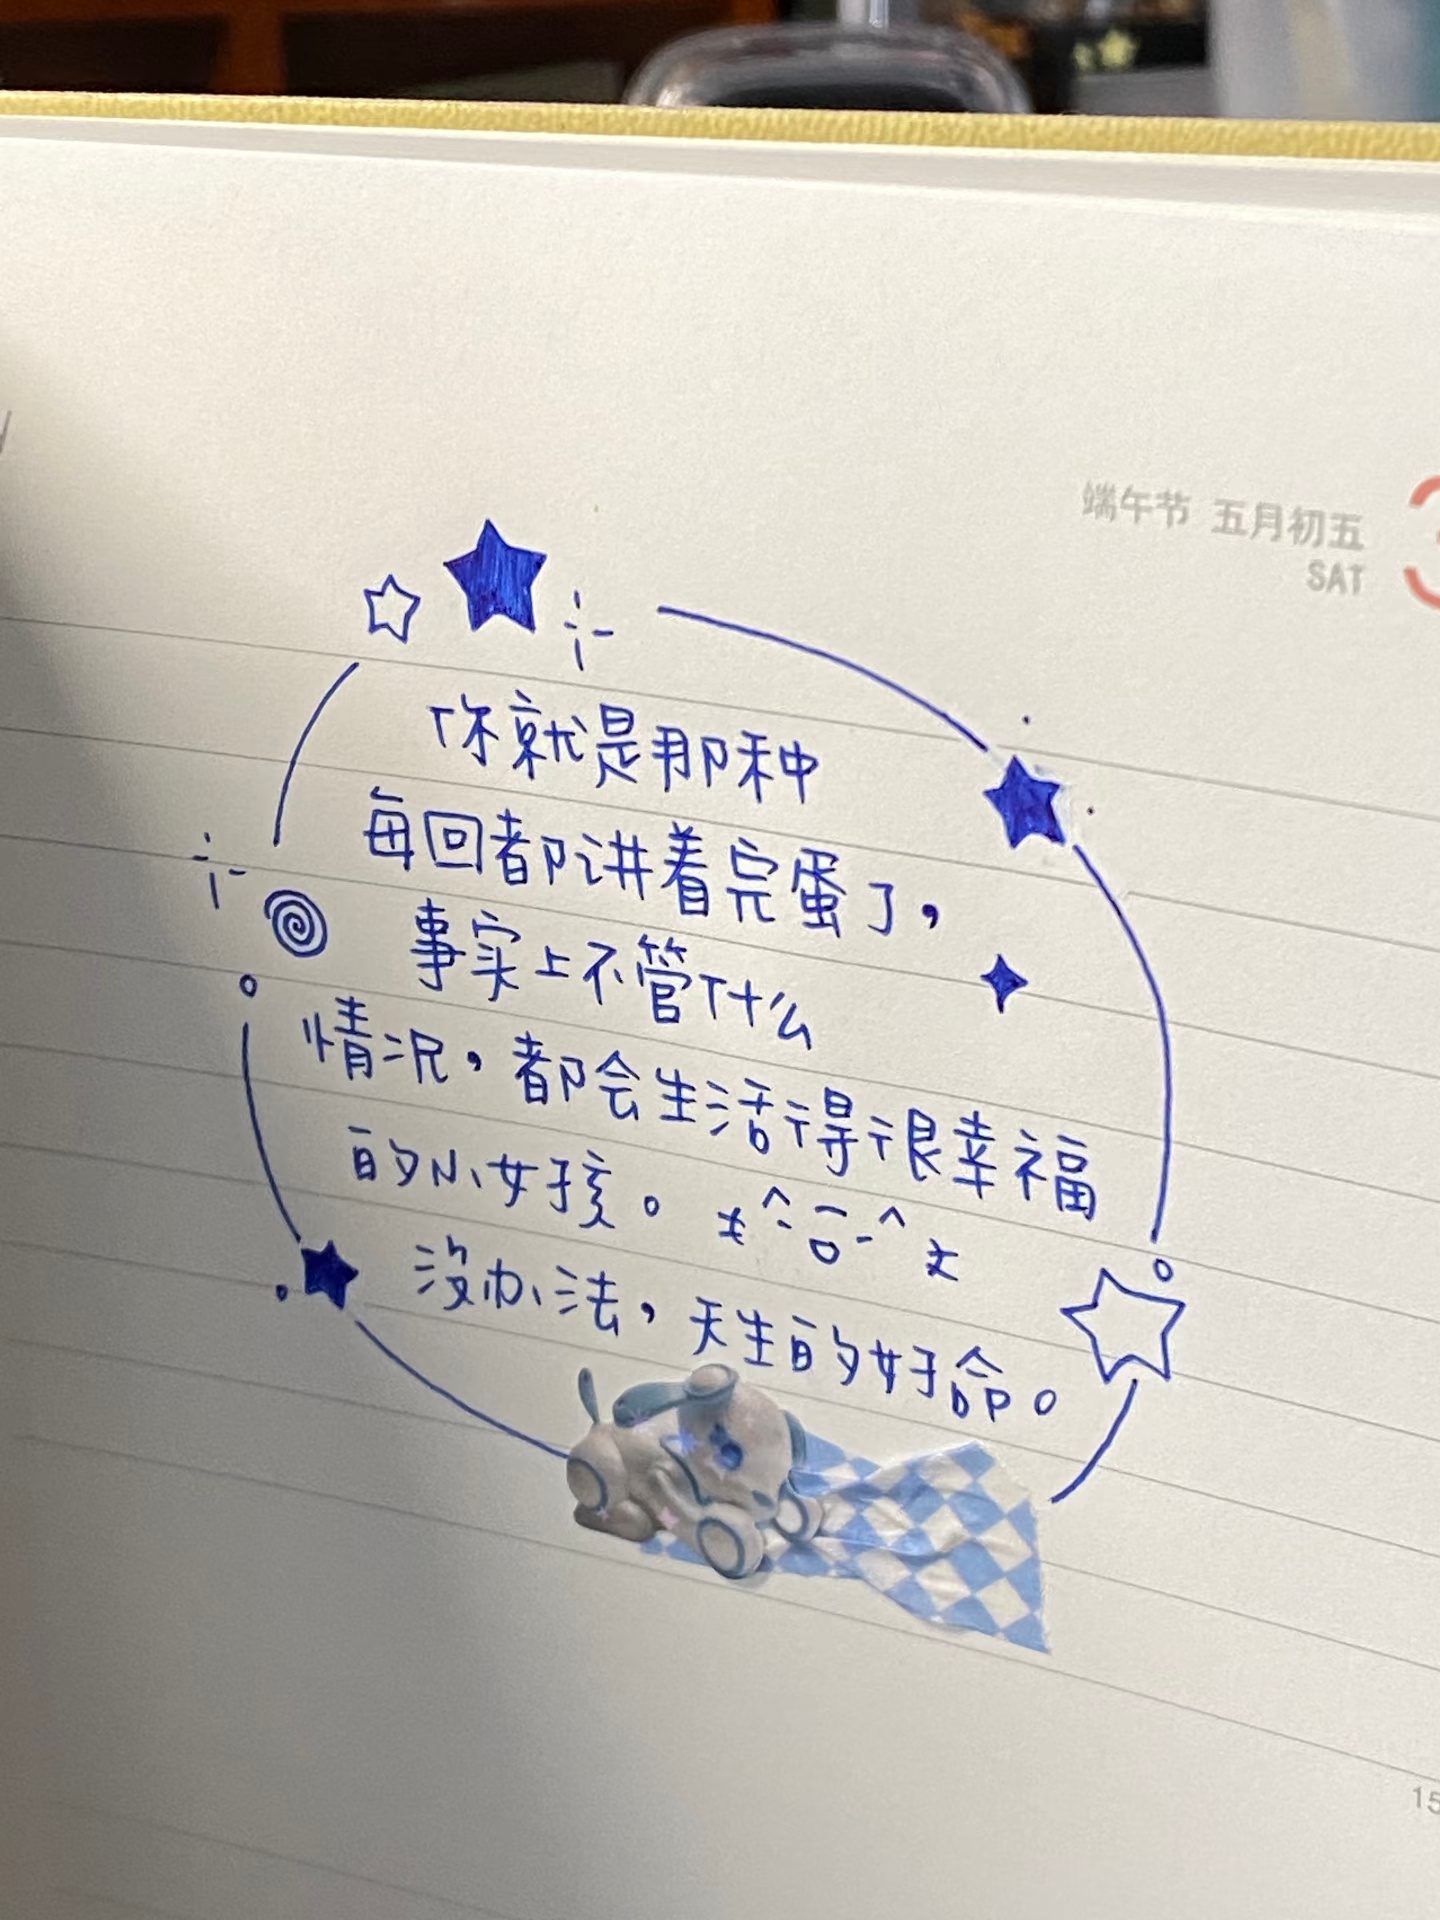 端午节 五月初五
SAT
你就是那种
每回都讲着完蛋了，
事实上不管什么
情况，都会生活得很幸福
的小女孩。
没办法，天生的好命。
15